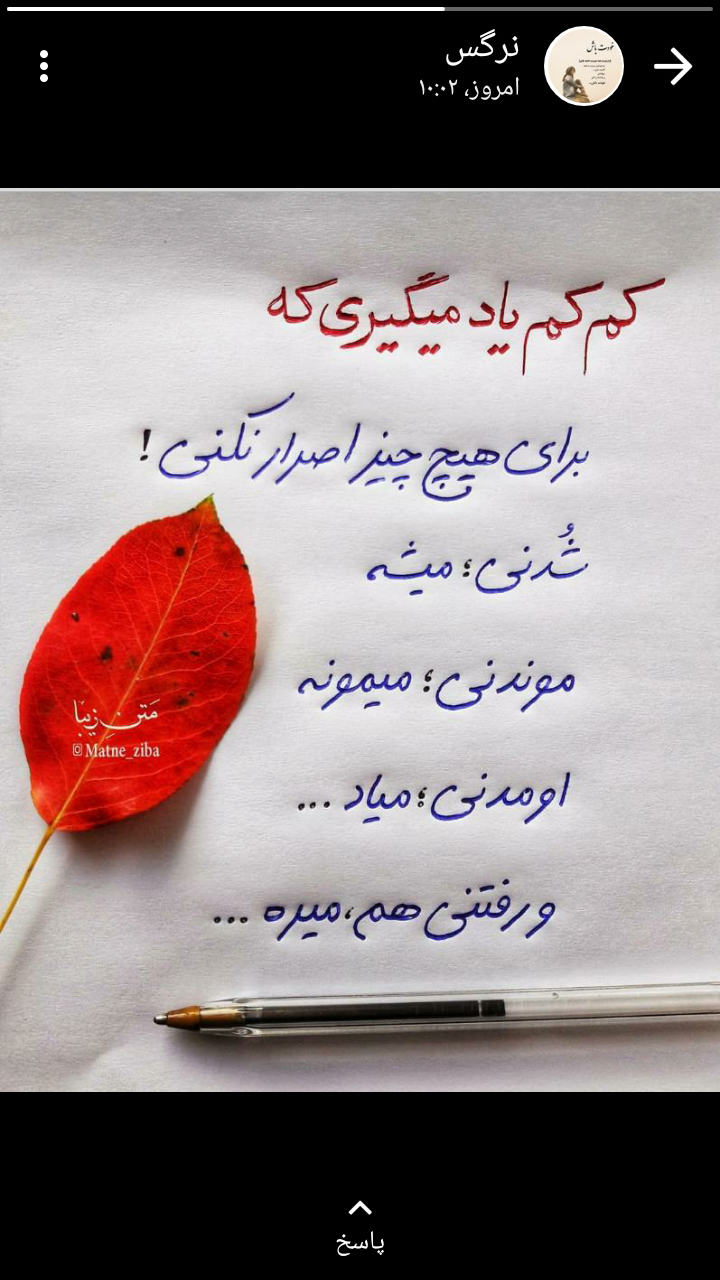 نرگس
امروز، ۱۰:۰۲
خودت باش
کم کم یاد میگیری که
برای هیچ چیز اصرار نکنی !
شُدنی؛ میشه
موندنی؛ میمونه
اومدنی؛ میاد ...
و رفتنی هم، میره ...
مَتن زیبا
@Matne_ziba
پاسخ